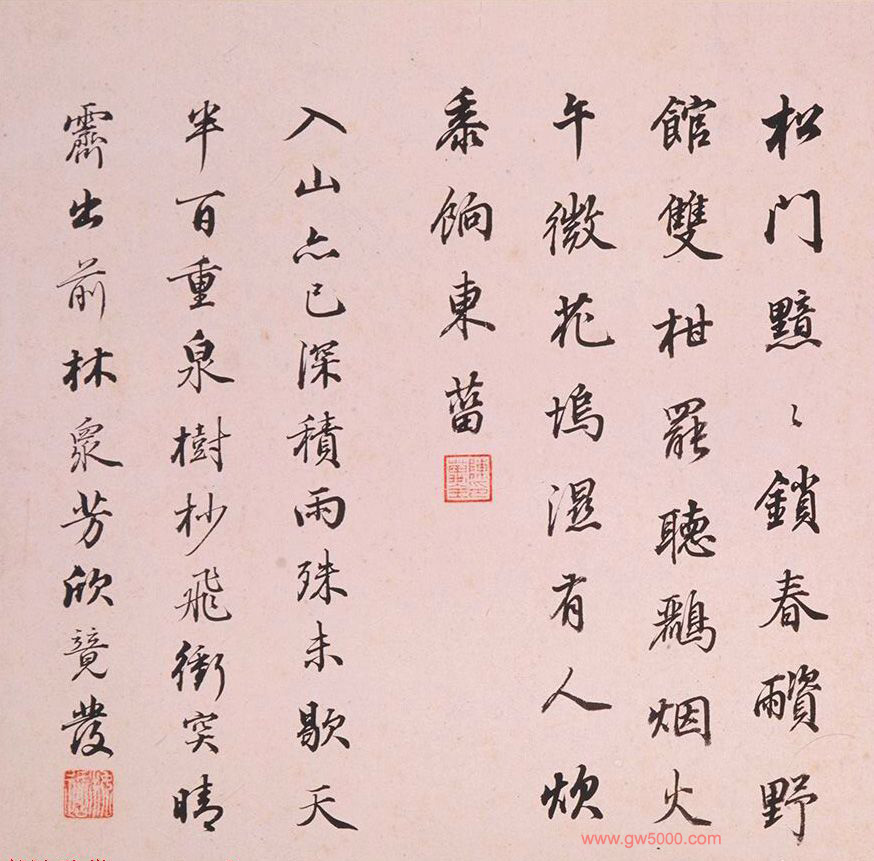 松門黯〻鎖春野
館雙柑罷聽鸝烟火
午微花塢濕有人炊
黍餉東菑
入山亦已深積雨殊未歇天
半百重泉樹杪飛衝突晴
霽出前林衆芳欣競發
www.gw5000.com